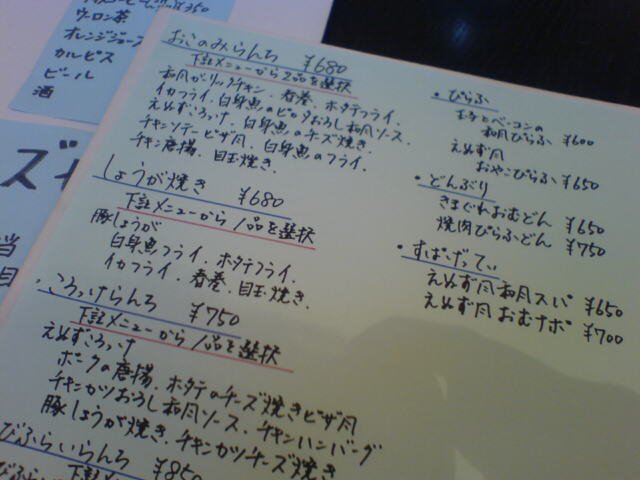 ¥350
ウーロン茶
オレンジジュース
カルピス
ビール
酒
ズ
当
目
おこのみらんち ¥680
下記メニューから2品を選択
和風ガーリックチキン、春巻、ホタテフライ、
イカフライ、白身魚のピリ辛おろし和風ソース、
えぬずころっけ、白身魚のチーズ焼き、
チキンソテーピザ風、白身魚のフライ、
チキン唐揚、目玉焼き。
しょうが焼き ¥680
下記メニューから1品を選択
豚しょうが
白身魚フライ、ホタテフライ、
イカフライ、春巻、目玉焼き。
・ころっけらんち ¥750
下記メニューから1品を選択
えぬずころっけ
ポークの唐揚、ホタテのチーズ焼きピザ風
チキンカツおろし和風ソース、チキンハンバーグ
豚しょうが焼き、チキンカツチーズ焼き
びふらいらんち ¥850
下記メニューから
・ぴらふ
とベーコンの
和風ぴらふ ¥600
えぬず風
おやこぴらふ ¥650
・どんぶり
きまぐれおむどん ¥650
焼肉ぴらふどん ¥750
・すぱげってぃ
えぬず風和風スパ ¥650
えぬず風おむナポ ¥700